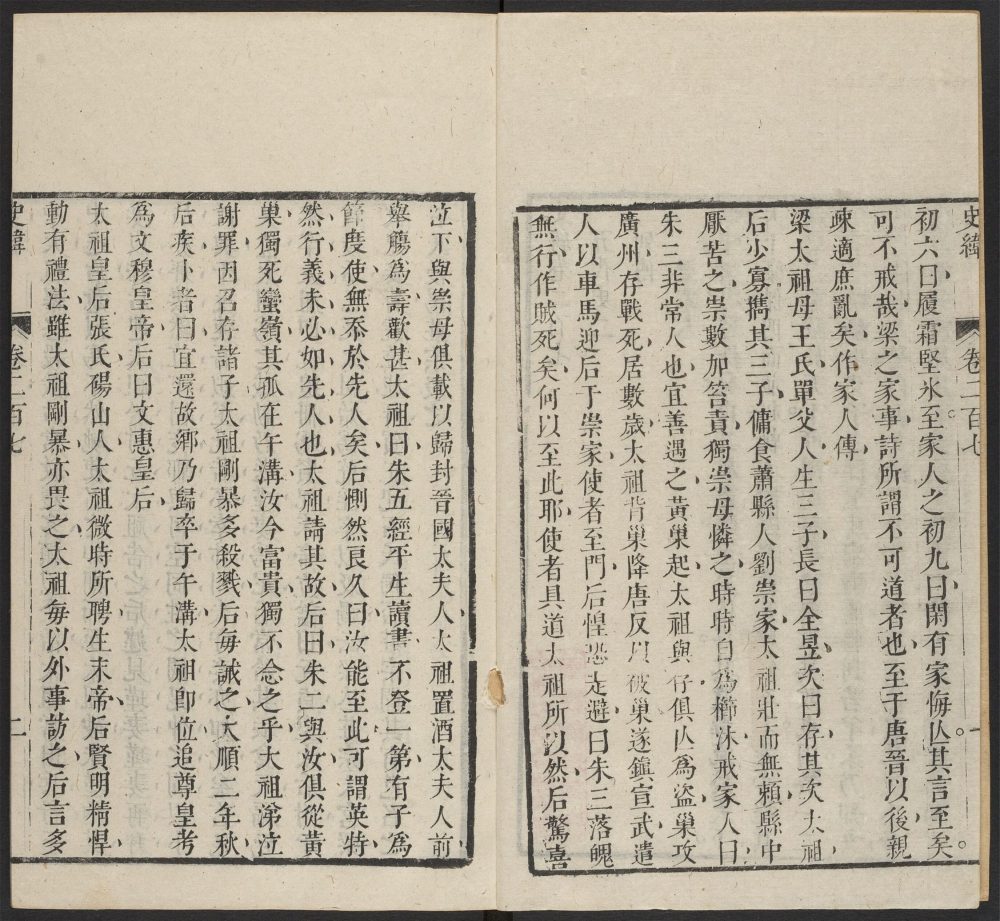 史緯 卷二百七 一
初六曰履霜堅氷至家人之初九曰閑有家悔亾其言至矣
可不戒哉梁之家事詩所謂不可道者也至于唐晉以後親
疎適庶亂矣作家人傳
梁太祖母王氏單父人生三子長曰全昱次曰存其次太祖
后少寡攜其三子傭食蕭縣人劉崇家太祖壯而無賴縣中
厭苦之崇數加笞責獨崇母憐之時時自爲櫛沐戒家人曰
朱三非常人也宜善遇之黃巢起太祖與存俱亾爲盜巢攻
廣州存戰死居數歲太祖背巢降唐反以破巢遂鎮宣武遣
人以車馬迎后于崇家使者至門后惶恐走避曰朱三落魄
無行作賊死矣何以至此耶使者具道太祖所以然后驚喜
泣下與崇母俱載以歸封晉國太夫人太祖置酒太夫人前
舉觴爲壽歡甚太祖曰朱五經平生讀書不登一第有子爲
節度使無忝於先人矣后惻然良久曰汝能至此可謂英特
然行義未必如先人也太祖請其故后曰朱二與汝俱從黃
巢獨死蠻嶺其孤在午溝汝今富貴獨不念之乎太祖涕泣
謝罪因召存諸子太祖剛暴多殺戮后每誡之大順二年秋
后疾卜者曰宜還故鄉乃歸卒于午溝太祖卽位追尊皇考
爲文穆皇帝后曰文惠皇后
太祖皇后張氏碭山人太祖微時所聘生末帝后賢明精悍
動有禮法雖太祖剛暴亦畏之太祖每以外事訪之后言多
史緯 卷二百七 二